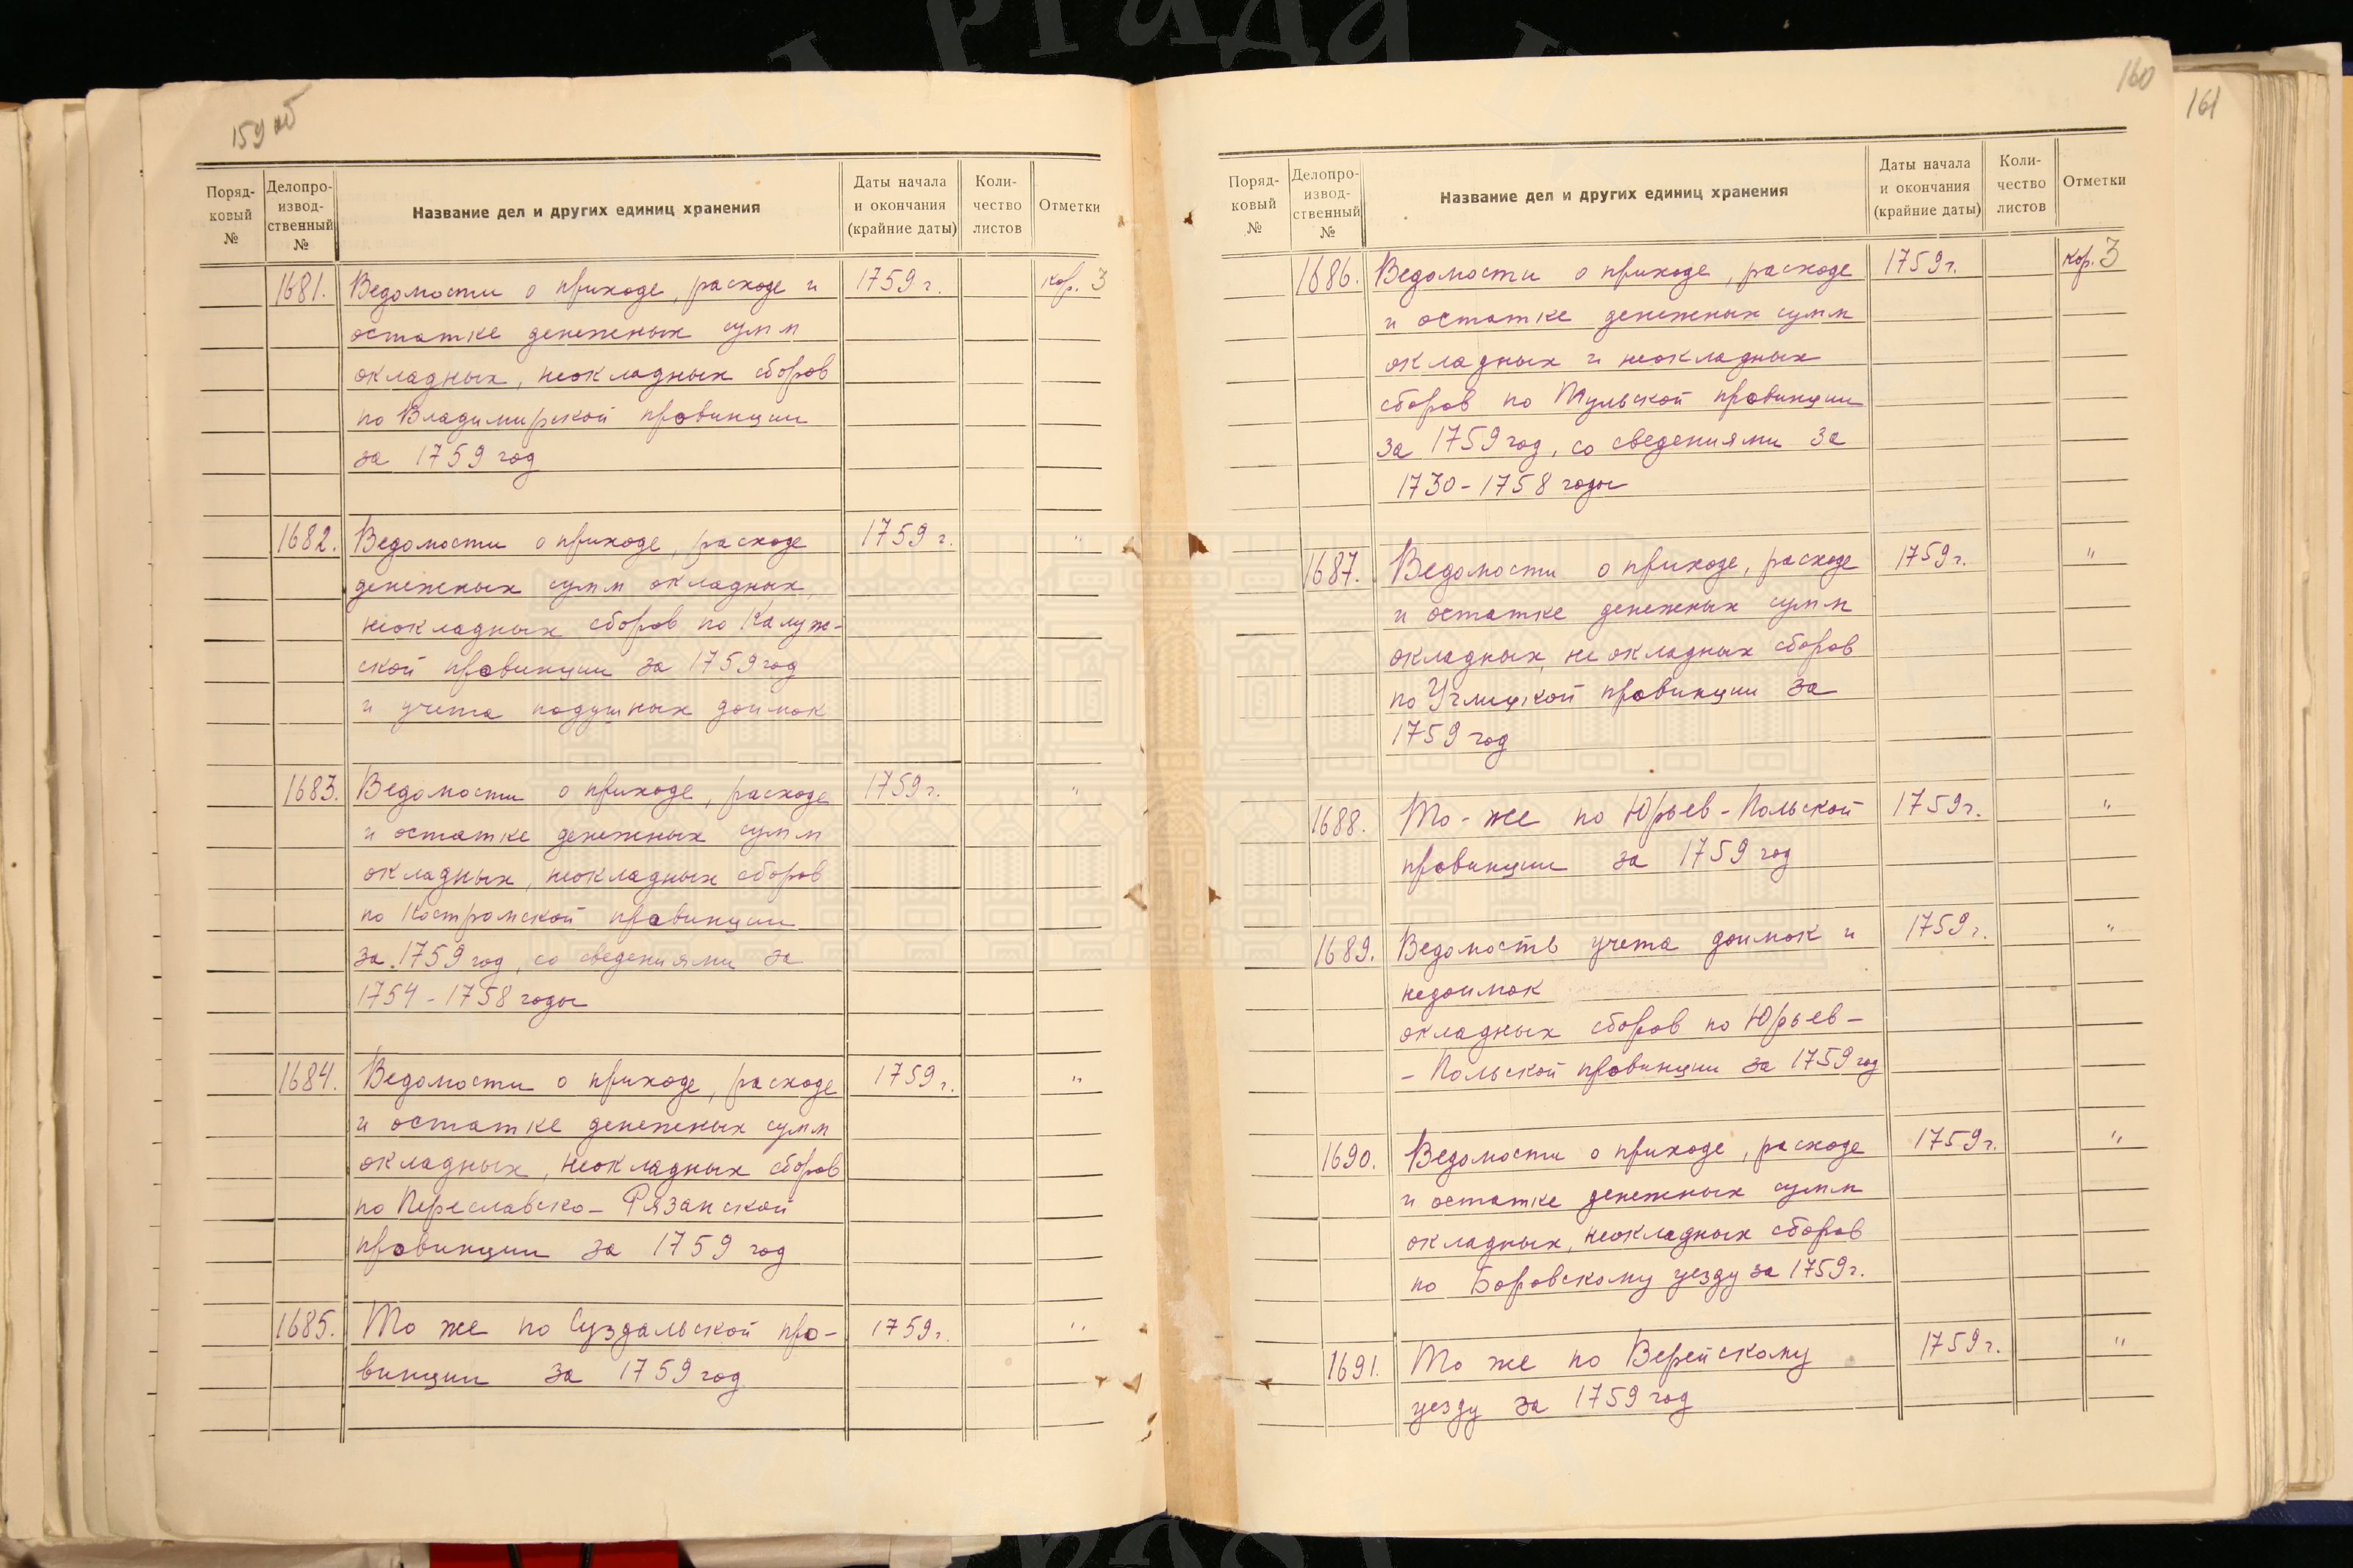 159 об
Поряд-
ковый
№
Делопро-
извод-
ственный
№
Название дел и других единиц хранения
Даты начала
и окончания
(крайние даты)
Коли-
чество
листов
Отметки
1681. Ведомости о приходе, расходе и 1759 г. кор. 3
остатке денежных сумм
окладных, неокладных сборов
по Владимирской провинции
за 1759 год
1682. Ведомости о приходе, расходе 1759 г. "
денежных сумм окладных,
неокладных сборов по Калуж-
ской провинции за 1759 год
и учета подушных доимок
1683. Ведомости о приходе, расходе 1759 г. "
и остатке денежных сумм
окладных, неокладных сборов
по Костромской провинции
за 1759 год, со сведениями за
1754 - 1758 годы
1684. Ведомости о приходе, расходе 1759 г. "
и остатке денежных сумм
окладных, неокладных сборов
по Переславско - Рязанской
провинции за 1759 год
1685. То же по Суздальской про- 1759 г. "
винции за 1759 год
160
161
Поряд-
ковый
№
Делопро-
извод-
ственный
№
Название дел и других единиц хранения
Даты начала
и окончания
(крайние даты)
Коли-
чество
листов
Отметки
1686. Ведомости о приходе, расходе 1759 г. кор. 3
и остатке денежных сумм
окладных и неокладных
сборов по Тульской провинции
за 1759 год, со сведениями за
1730 - 1758 годы
1687. Ведомости о приходе, расходе 1759 г. "
и остатке денежных сумм
окладных, неокладных сборов
по Углицкой провинции за
1759 год
1688. То - же по Юрьев - Польской 1759 г. "
провинции за 1759 год
1689. Ведомость учета доимок и 1759 г. "
недоимок
окладных сборов по Юрьев -
- Польской провинции за 1759 год
1690. Ведомости о приходе, расходе 1759 г. "
и остатке денежных сумм
окладных, неокладных сборов
по Боровскому уезду за 1759 г.
1691. То же по Верейскому 1759 г. "
уезду за 1759 год